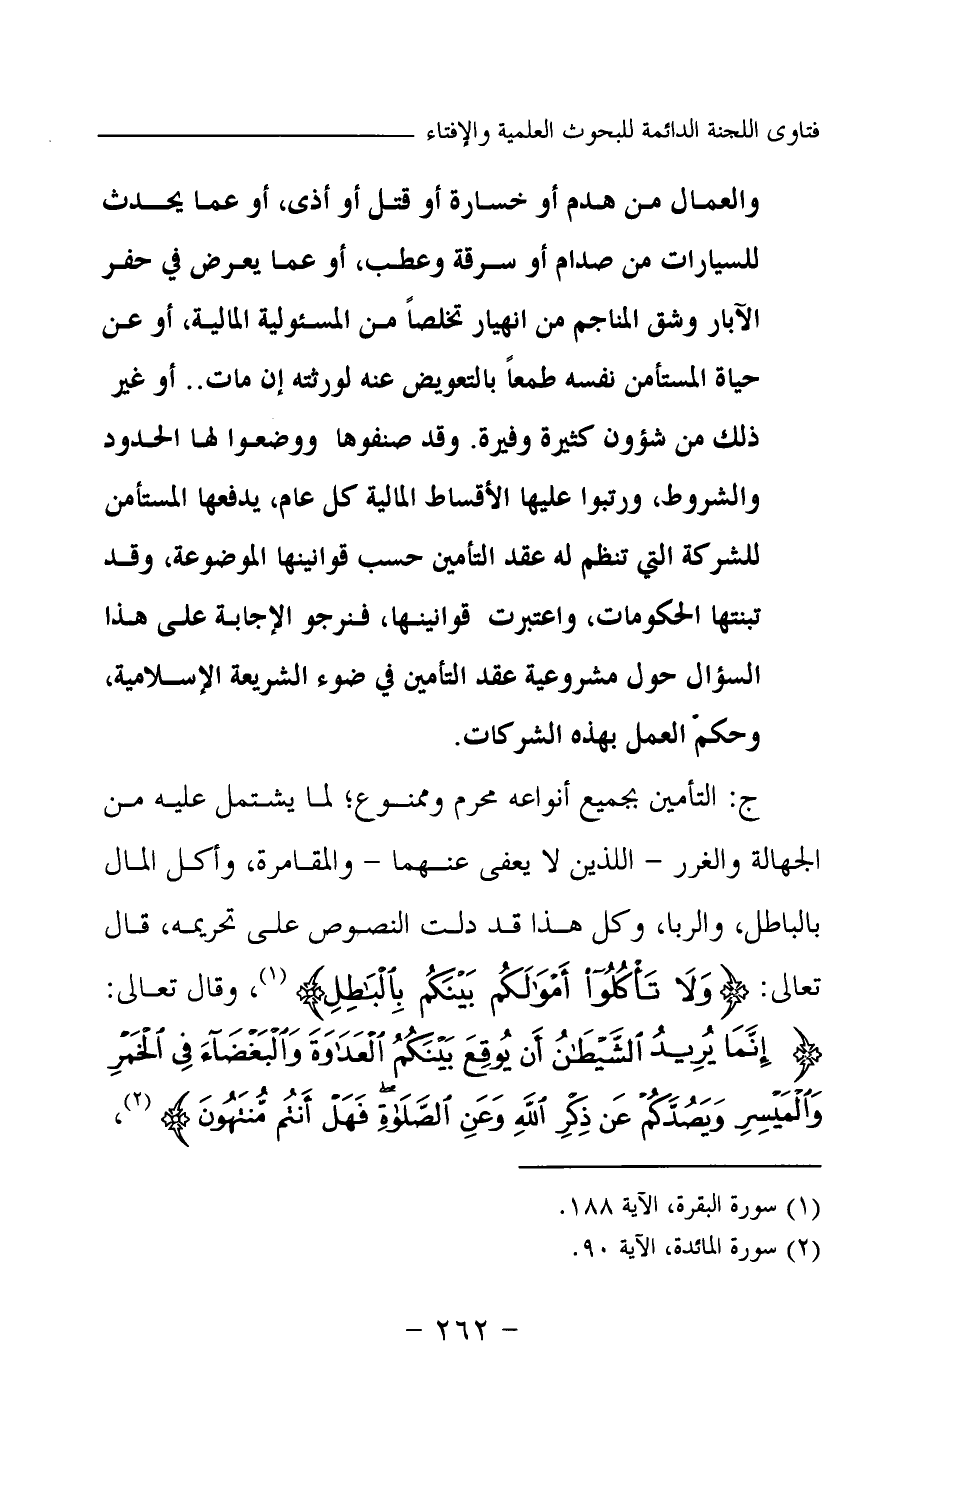 فتاوى اللجنة الدائمة للبحوث العلمية والإفتاء
والعمال من هدم أو خسارة أو قتل أو أذى، أو عما يحدث
للسيارات من صدام أو سرقة وعطب، أو عما يعرض في حفر
الآبار وشق المناجم من انهيار تخلصاً من المسئولية المالية، أو عن
حياة المستأمن نفسه طمعاً بالتعويض عنه لورثته إن مات.. أو غير
ذلك من شؤون كثيرة وفيرة. وقد صنفوها ووضعوا لها الحدود
والشروط، ورتبوا عليها الأقساط المالية كل عام، يدفعها المستأمن
للشركة التي تنظم له عقد التأمين حسب قوانينها الموضوعة، وقد
تبنتها الحكومات، واعتبرت قوانينها، فنرجو الإجابة على هذا
السؤال حول مشروعية عقد التأمين في ضوء الشريعة الإسلامية،
وحكم العمل بهذه الشركات.
ج: التأمين بجميع أنواعه محرم وممنوع؛ لما يشتمل عليه من
الجهالة والغرر – اللذين لا يعفى عنهما – والمقامرة، وأكل المال
بالباطل، والربا، وكل هذا قد دلت النصوص على تحريمه، قال
تعالى: ﴿وَلَا تَأْكُلُوٓا۟ أَمْوَٰلَكُم بَيْنَكُم بِٱلْبَٰطِلِ﴾ (١)، وقال تعالى:
﴿إِنَّمَا يُرِيدُ ٱلشَّيْطَٰنُ أَن يُوقِعَ بَيْنَكُمُ ٱلْعَدَٰوَةَ وَٱلْبَغْضَآءَ فِى ٱلْخَمْرِ
وَٱلْمَيْسِرِ وَيَصُدَّكُمْ عَن ذِكْرِ ٱللَّهِ وَعَنِ ٱلصَّلَوٰةِ ۖ فَهَلْ أَنتُم مُّنتَهُونَ﴾ (٢)،
(١) سورة البقرة، الآية ١٨٨.
(٢) سورة المائدة، الآية ٩٠.
– ٢٦٢ –